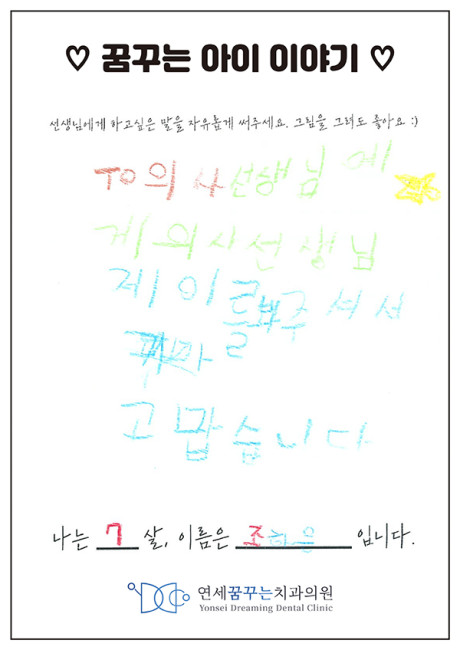 ♡ 꿈꾸는 아이 이야기 ♡
선생님에게 하고싶은 말을 자유롭게 써주세요. 그림을 그려도 좋아요 :)
TO의사선생님에
게 의사선생님
제 이를봐주셔서
고맙습니다
나는 7 살, 이름은 조하음 입니다.
연세꿈꾸는치과의원
Yonsei Dreaming Dental Clinic